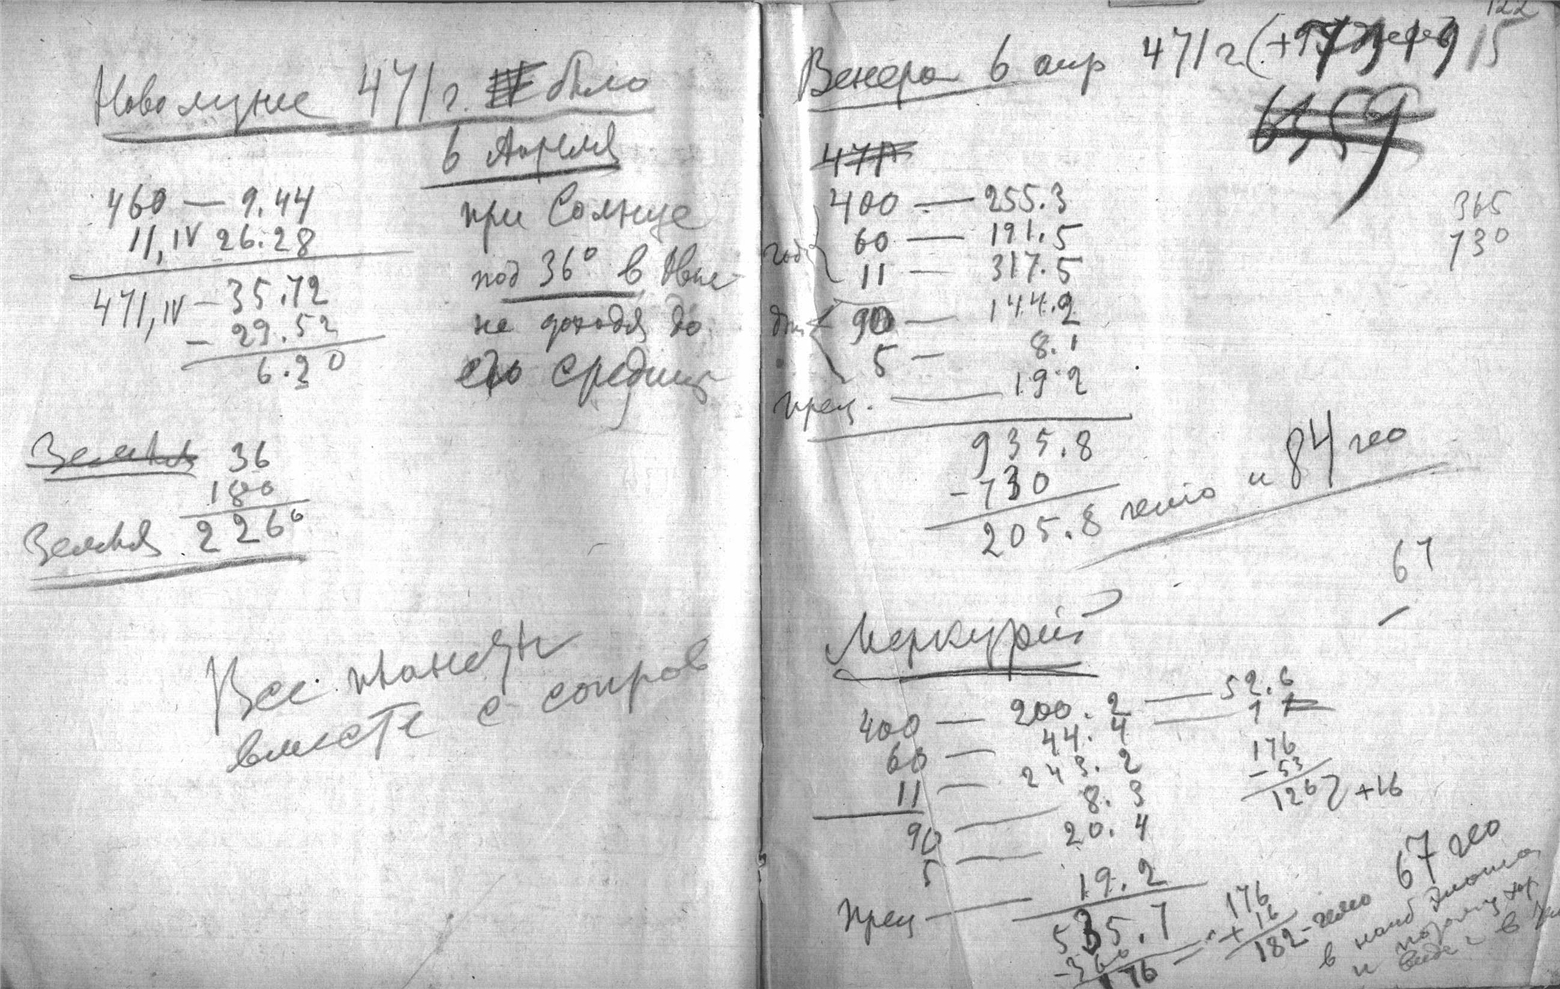 Новолуние 471 г. было
6 Апреля
460 — 9.44
11, IV 26.28
471, IV — 35.72
— 29.53
6.20
при Солнце
под 36° в Овне
не доходя до
его средины
Земля 36
180
Земля 226°
Все планеты
вместе с
122
Венера 6 апр 471 г (+
15
6159
471
400 — 255.3
год 60 — 191.5
11 — 317.5
дни 90 — 144.2
5 — 8.1
прец. — 19.2
935.8
- 730
205.8 гелио и 84 гео
365
730
67
Меркурий
400 — 200.2 — 52.6
60 — 44.4 — 17
11 — 243.2
90 — 8.3
5 — 20.4
прец — 19.2
535.7
- 360
176
176
- 53
126 + 16
176
+ 16
182 - гелио 67 гео
в наиб элонга
и